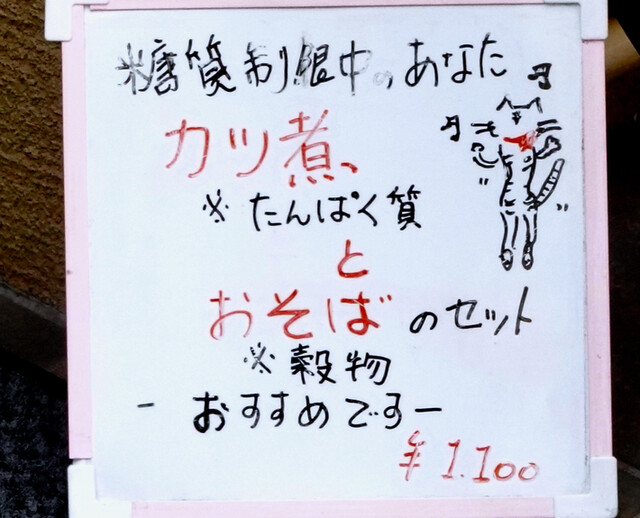 糖質制限中。あなた
カツ煮、
※たんぱく質
と
おそばのセット
※穀物
- おすすめですー
¥1.100